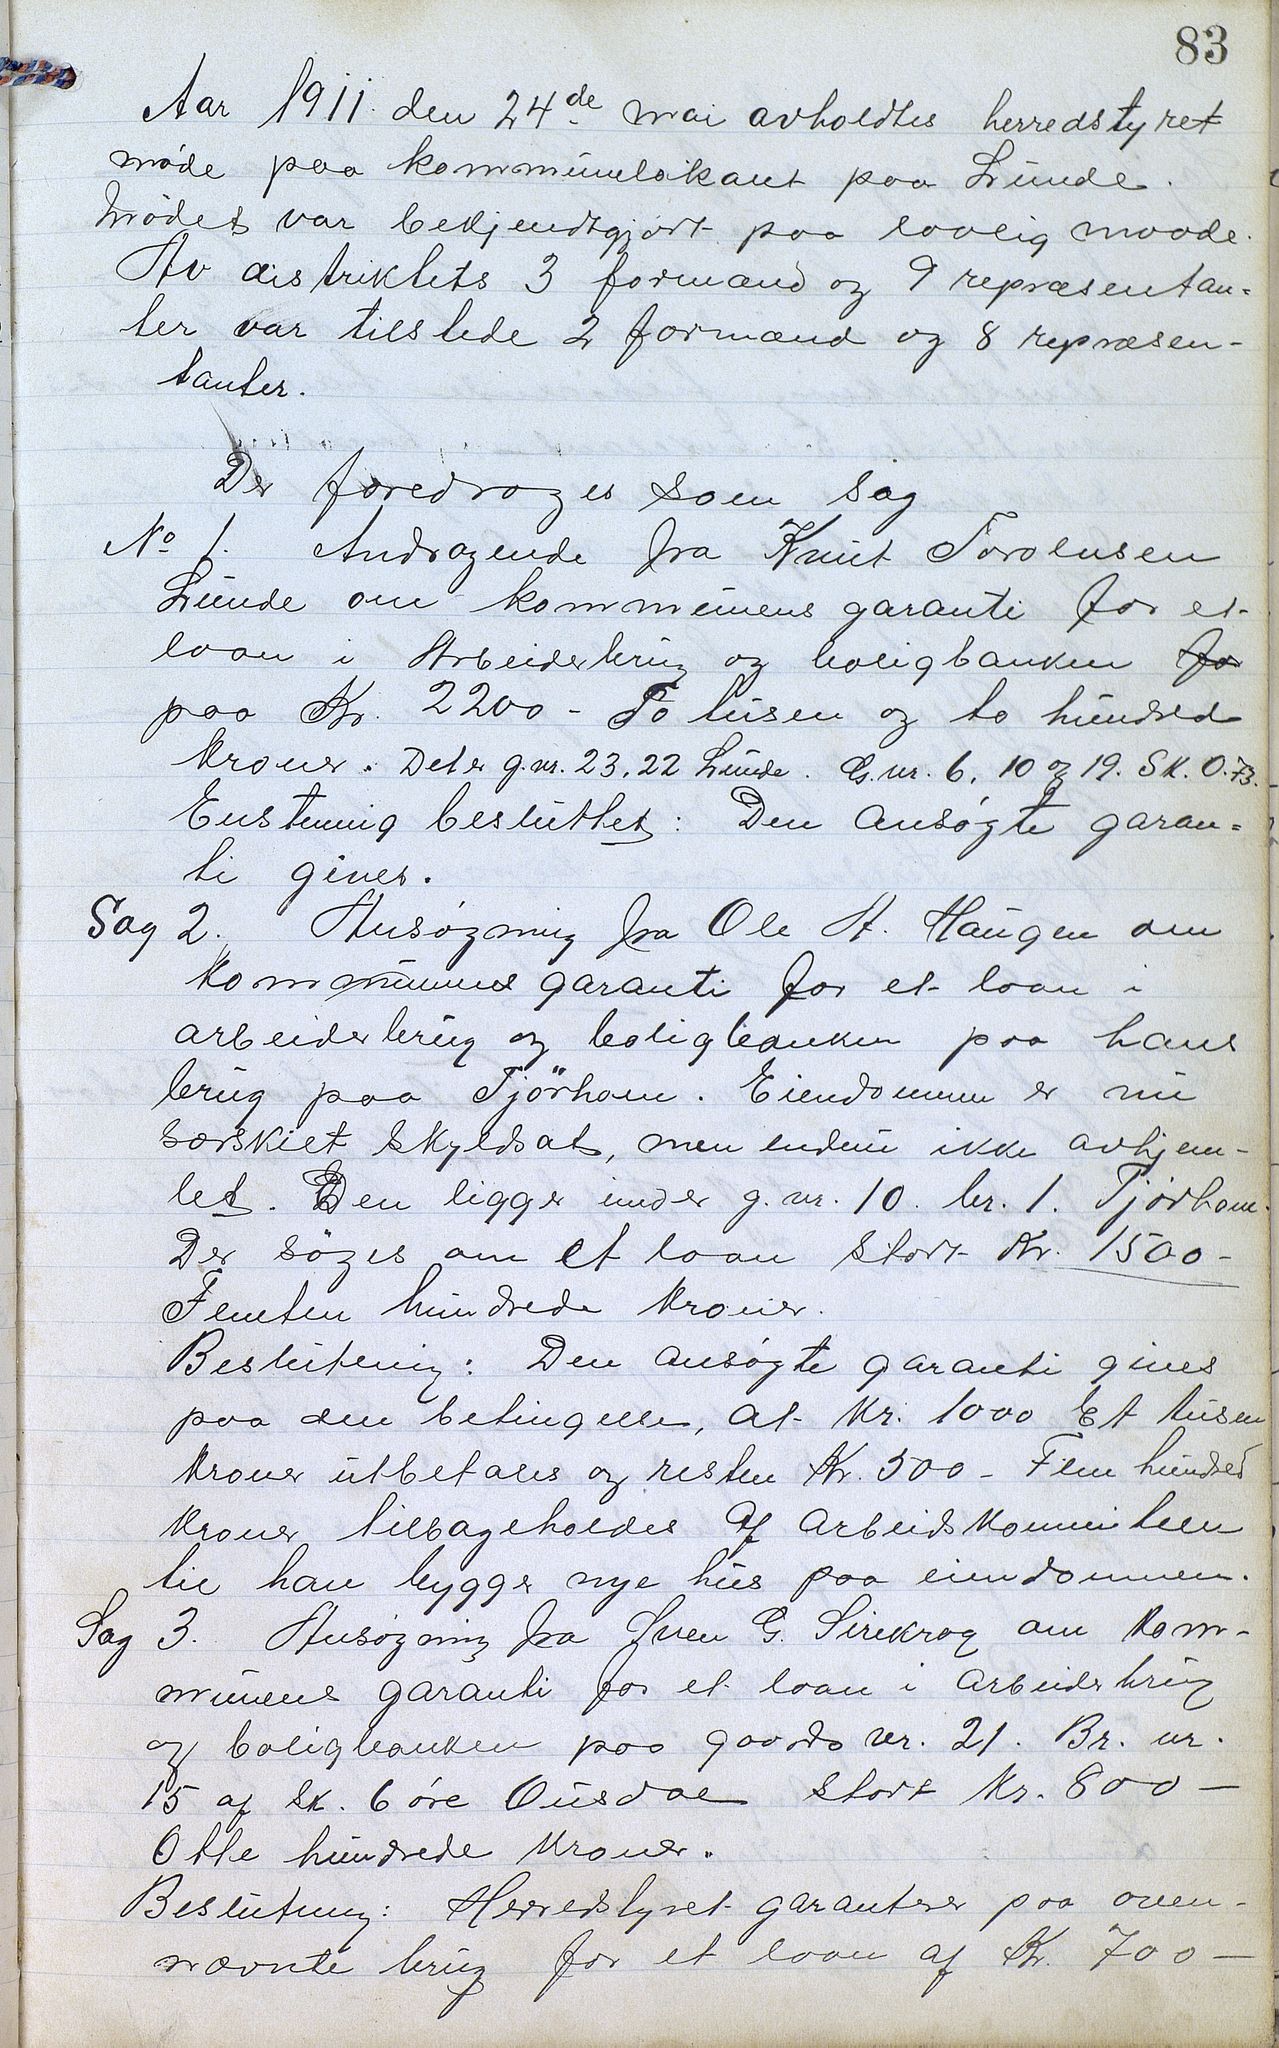 83
Aar 1911 den 24de mai avholdtes herredstyret
møde paa kommunelokant paa Lunde.
Mødet var bekjendtgjørt paa lovlig maade.
Av distriktets 3 formænd og 9 repræsentan=
ter var tilstede 2 formænd og 8 repræsen-
tanter.
Der foredroges som sag
No 1. Andragende fra Knut Torolusen
Lunde om kommunens garanti for et
laan i Arbeiderbrug og boligbanken for
paa Kr. 2200 - To tusen og to hundred
kroner. Det er g.nr. 23,22 Lunde. G.nr. 6, 10 og 19. SK. 0.73.
Enstemmig besluttet: Den ansøgte garan=
ti gives.
Sag 2. Ansøgning fra Ole A. Haugen om
kommunens garanti for et laan i
arbeiderbrug og boligbanken paa hans
brug paa Tjørhom. Eiendommen er nu
særskilt skyldsat, men endnu ikke avhjem-
let. Den ligger under g.nr. 10. br. 1. Tjørhom.
Der søges om et laan stort Kr. 1500-
Femten hundrede kroner.
Beslutning: Den ansøgte garanti gives
paa den betingelse, at Kr. 1000 Et tusen
kroner utbetales og resten Kr. 500 - Fem hundred
kroner tilbageholdes af arbeidskommiteen
til han bygger nye hus paa eiendommen.
Sag 3. Ansøgning fra Sven G. Sirekrog om kom-
munens garanti for et laan i arbeiderbrug
og boligbanken paa gaards nr. 21. Br. nr.
15 af sk. 6 øre Ousdal stort Kr. 800 -
Otte hundrede kroner.
Beslutning: Herredstyret garanterer paa oven-
nævnte brug for et laan af Kr. 700 -